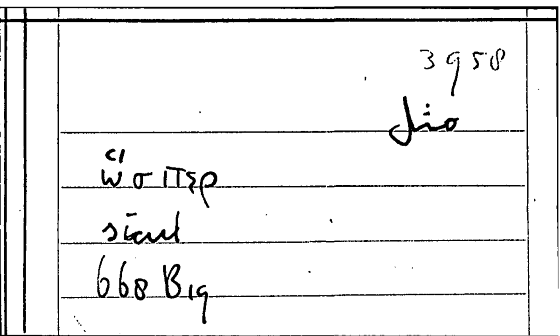 3958
ὥσπερ
sicut
668 B19